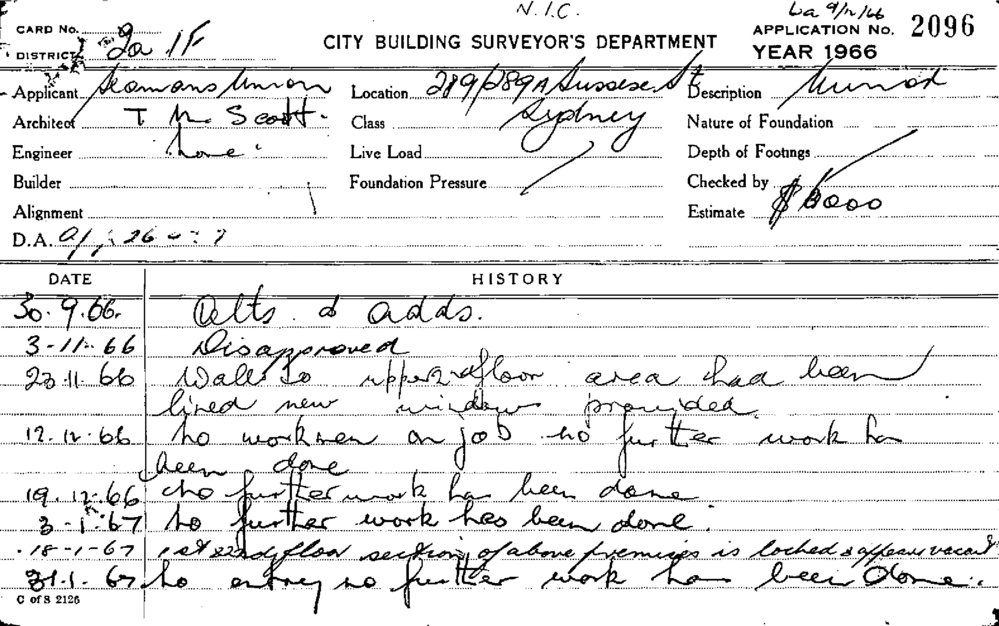 N.I.C.
La 9/12/66
CARD No.
APPLICATION No. 2096
CITY BUILDING SURVEYOR'S DEPARTMENT
DISTRICT 2a 1F
YEAR 1966
Applicant Seamans Union Location 289/289A Sussex St Description
Architect T M Scott. Class Sydney Nature of Foundation
Engineer Live Load Depth of Footings
Builder Foundation Pressure Checked by
Alignment Estimate
D.A.
DATE HISTORY
30.9.66. Alts. & adds.
3-11-66 Disapproved
23.11.66 Walls to upper 2nd floor area had been
lined new windows provided.
12.12.66 No workmen on job no further work has
been done
19.12.66 No further work has been done
3-1-67 No further work has been done.
18-1-67 1st & 2nd floor section of above premises is locked & appears vacant
31.1.67 No entry no further work has been done.
C of S 2126